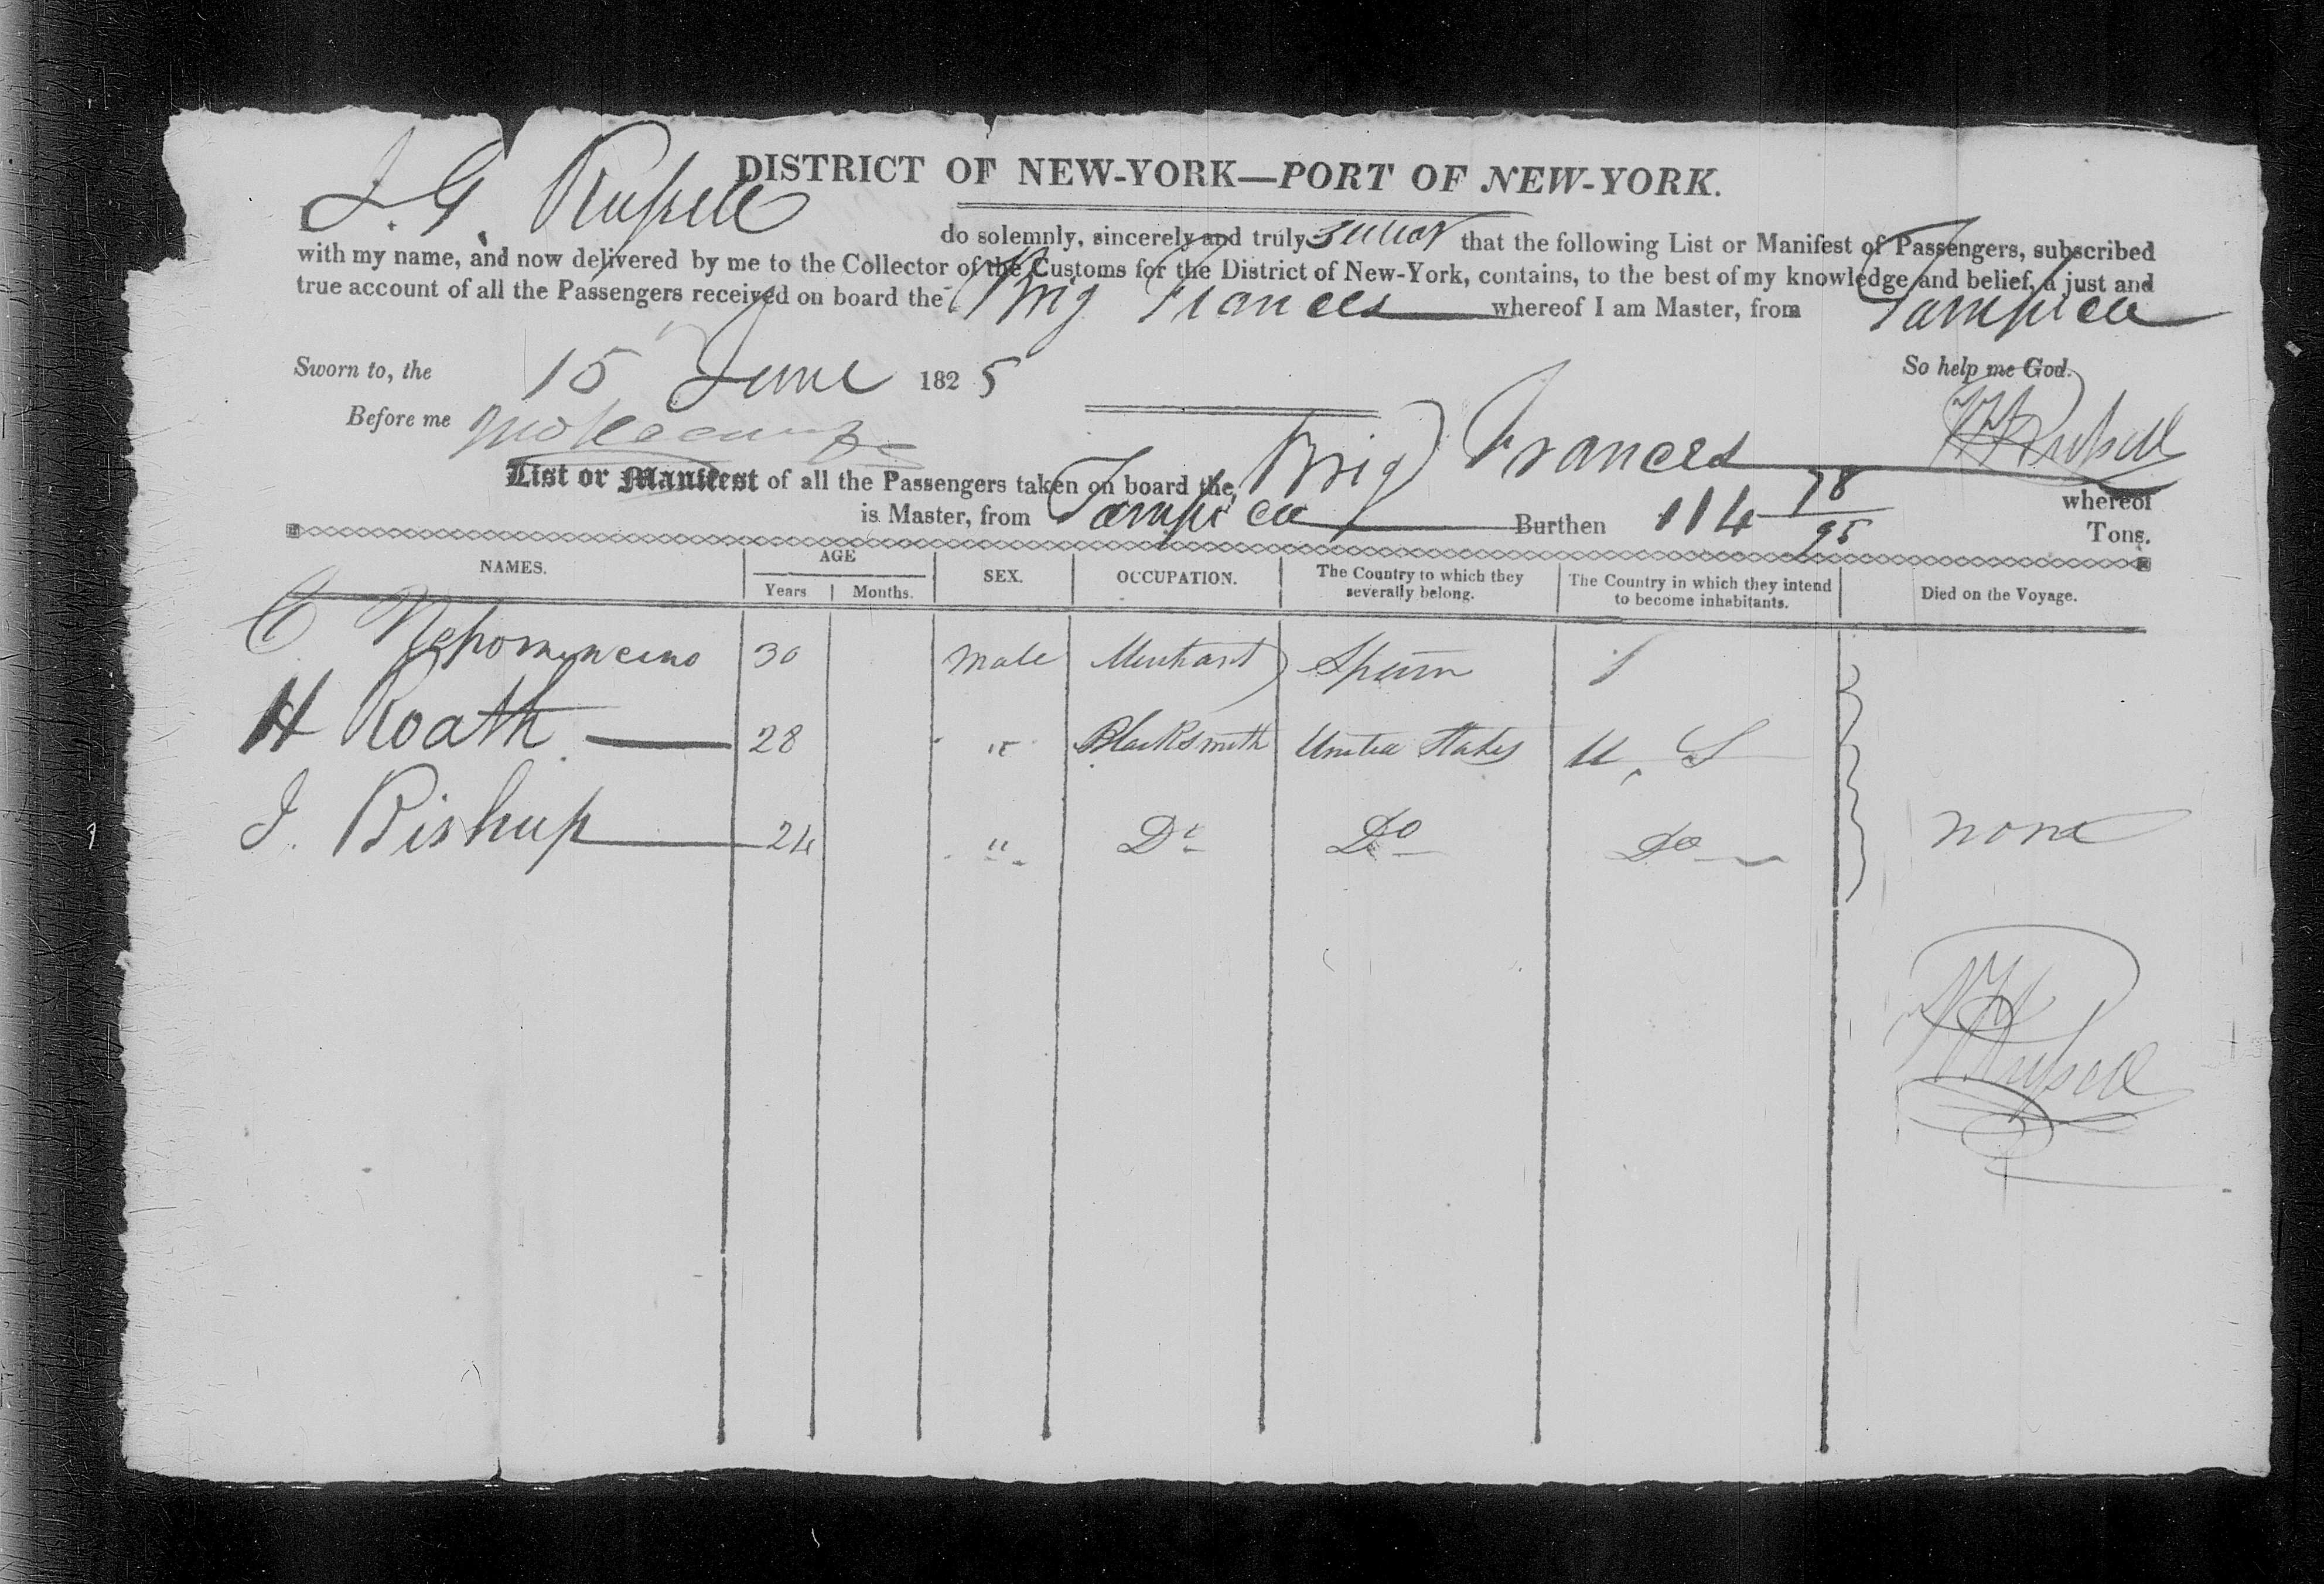 DISTRICT OF NEW-YORK—PORT OF NEW-YORK.
I. G. Russell do solemnly, sincerely and truly swear that the following List or Manifest of Passengers, subscribed
with my name, and now delivered by me to the Collector of the Customs for the District of New-York, contains, to the best of my knowledge and belief, a just and
true account of all the Passengers received on board the Brig Frances whereof I am Master, from Tampico
Sworn to, the 15 June 1825 So help me God.
Before me Russell
List or Manifest of all the Passengers taken on board the Brig Frances whereof
is Master, from Tampico Burthen 114 78/95 Tons.
NAMES. AGE SEX. OCCUPATION. The Country to which they severally belong. The Country in which they intend to become inhabitants. Died on the Voyage.
Years Months.
C Nepomunceno 30 Male Merchant Spain
H Roath 28 " Blacksmith United States U. S
J. Bishup 24 " Do Do Do none
Russell